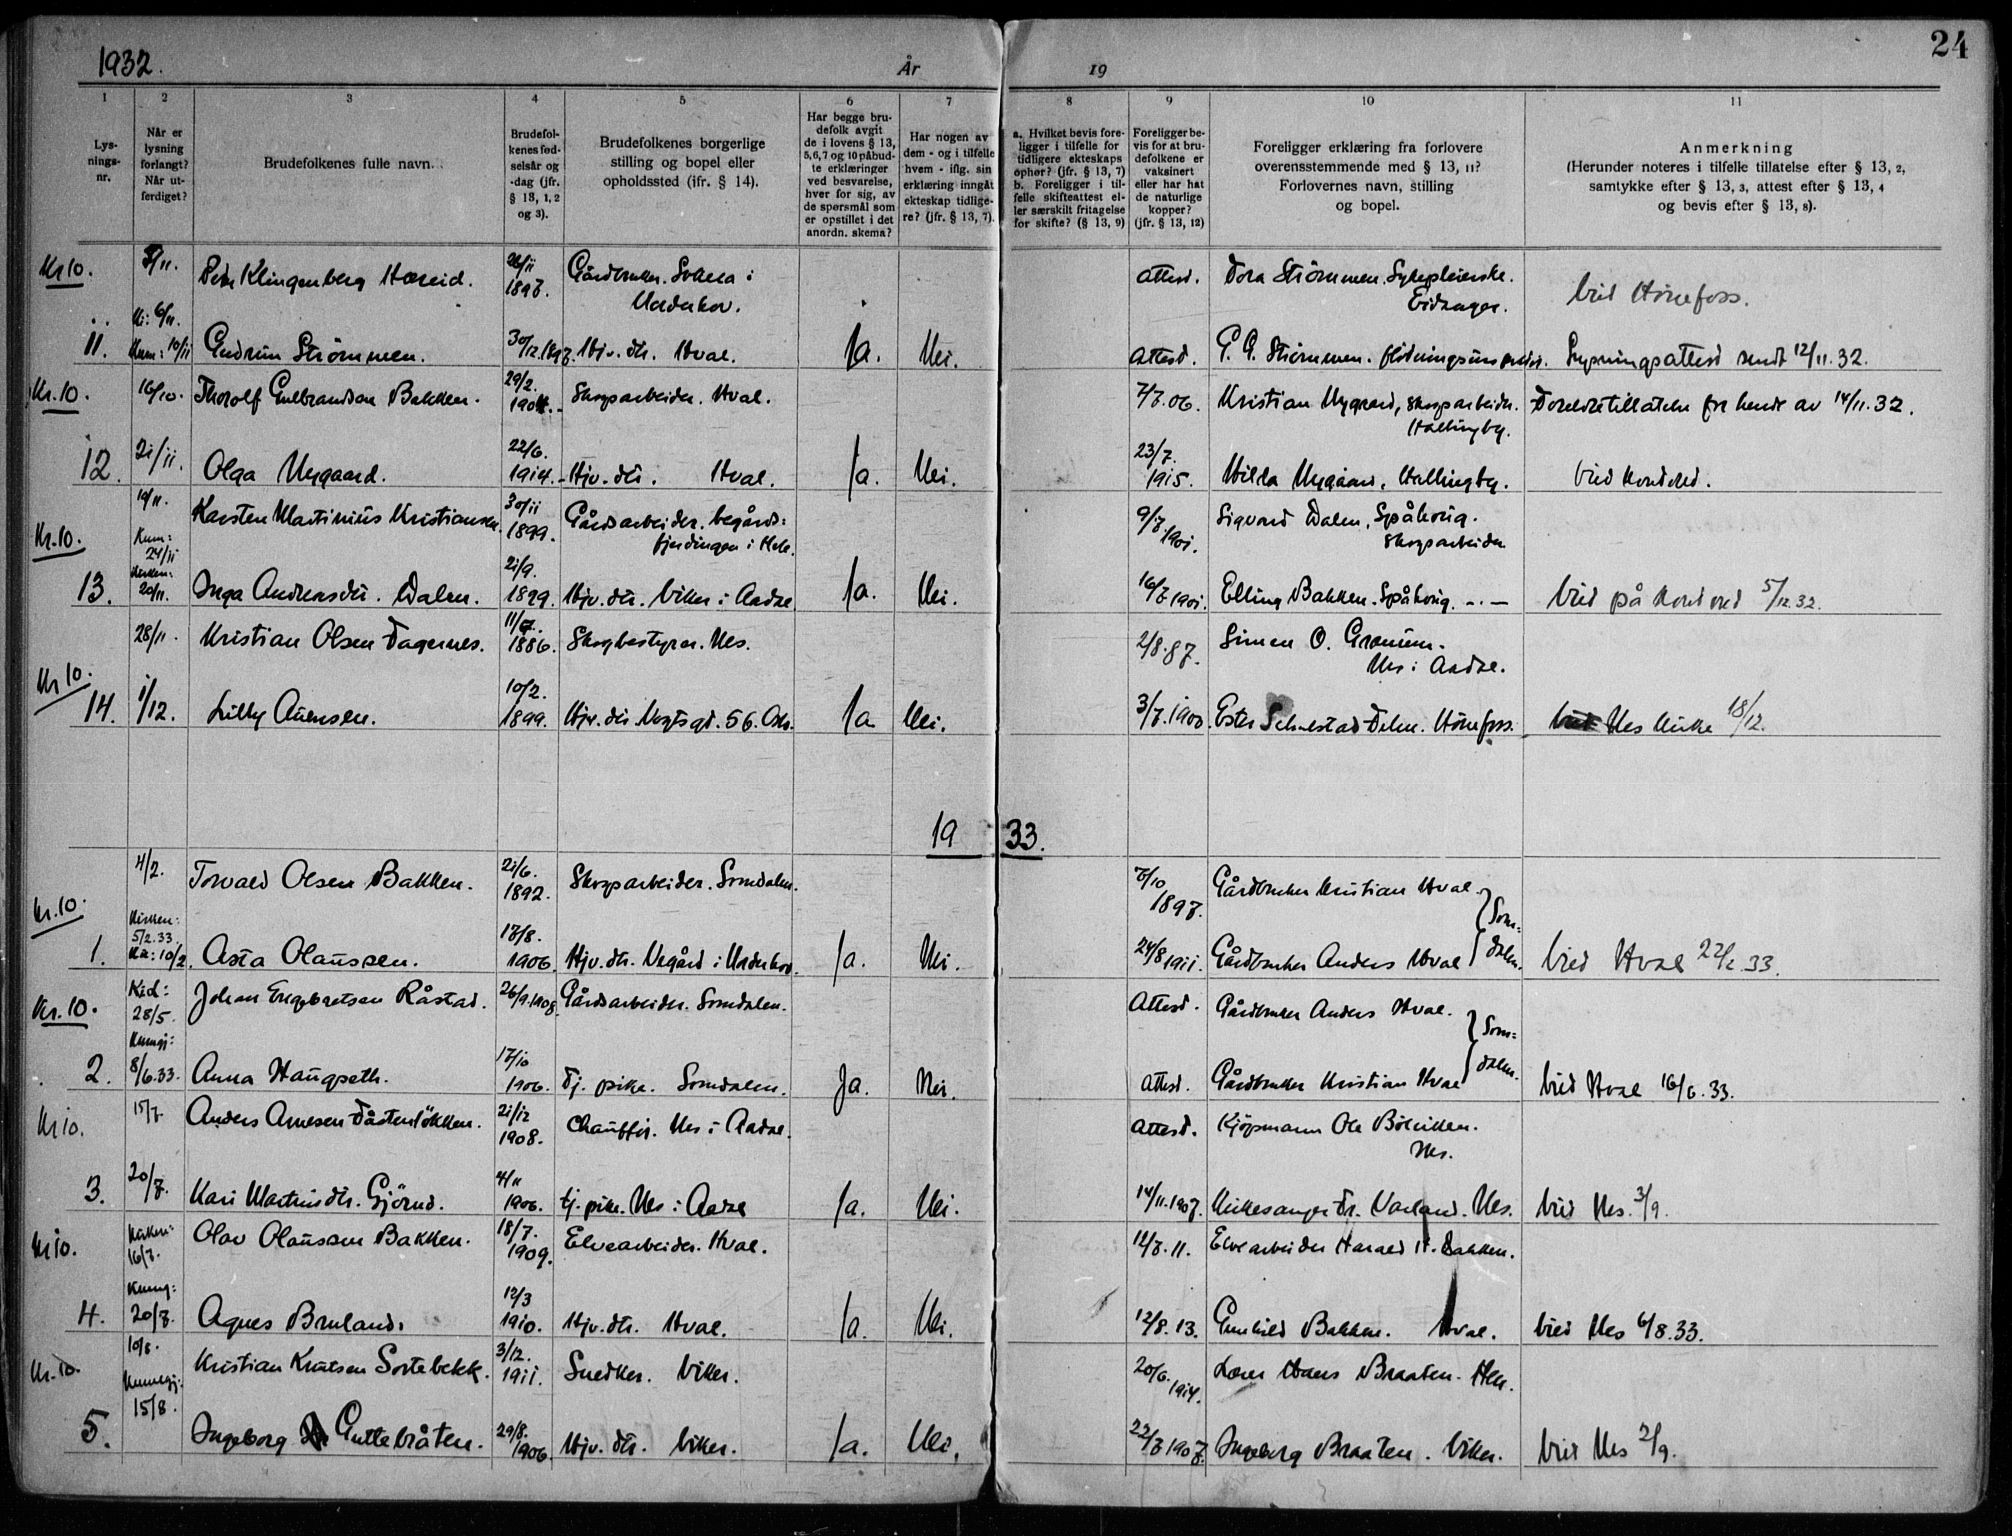 1932.
År
19
24
1
2
3
4
5
6
7
8
9
10
11
Lys-
nings-
nr.
Når er
lysning
forlangt?
Når ut-
ferdiget?
Brudefolkenes fulle navn.
Brudefol-
kenes fød-
selsår og
-dag (jfr.
§ 13, 1, 2
og 3).
Brudefolkenes borgerlige
stilling og bopel eller
opholdssted (ifr. § 14).
Har begge bru-
defolk avgit
de i lovens § 13,
5, 6, 7 og 10 påbud-
te erklæringer
ved besvarelse,
hver for sig, av
de spørsmål som
er opstillet i det
anordn. skema?
Har nogen av
dem - og i tilfelle
hvem - iflg. sin
erklæring inngåt
ekteskap tidlige-
re? (jfr. § 13, 7).
a. Hvilket bevis fore-
ligger i tilfelle for
tidligere ekteskaps
ophør? (jfr. § 13, 7)
b. Foreligger i til-
felle skifteattest el-
ler særskilt fritagelse
for skifte? (§ 13, 9)
Foreligger be-
vis for at bru-
defolkene er
vaksinert
eller har hat
de naturlige
kopper?
(jfr. § 13, 12)
Foreligger erklæring fra forlovere
overensstemmende med § 13, 11?
Forlovernes navn, stilling
og bopel.
Anmerkning
(Herunder noteres i tilfelle tillatelse efter § 13, 2,
samtykke efter § 13, 3, attest efter § 13, 4
og bevis efter § 13, 8).
Kr 10. Klingenberg Hareid. 1897. Gårdbruker. Sokna i Attest. Dora Strømmen. Sykepleierske. Vied Hønefoss.
Norderhov. Eidanger.
11. 10/11 Gudrun Strømmen. 30/12.1897. Hjv. dtr. Hval. Ja. Nei. Attest. Strømmen. Lysningsattest sendt 12/11.32.
Kr. 10. 16/10. Thorolf Gulbrandsen Bakken. 29/2. 1904. Skogsarbeider. Hval. 7/7.06. Kristian Nygaard, skogsarbeider. Foreldretillatelse for hende av 14/11.32.
Hallingby.
12. 21/11. Olga Nygaard. 22/6. 1914. Hjv. dtr. Hval. Ja. Nei. 23/7. 1915. Hilda Nygaard, Hallingby.
Kr. 10. 19/11. Karsten Martinius Kristiansen. 30/11 1899. Gårdsarbeider. 9/7.1901. Sigvard Dalen,
Kun: 24/11 fjerdingen i Hole. Skogsarbeider
13. Kirken: 20/11. Inga Andreasdtr. Dalen. 21/9. 1899. Hjv. dtr. Viker i Aadal Ja. Nei. 16/7 1901. Elling Bakken. 5/12.32.
28/11. Kristian Olsen Fagernes. 1886. Skogbestyrer. Nes. 2/8.87. Simen O. Granum.
Nes i Aadal.
Kr 10.
14. 1/12. Lilly Aüensen. 10/2. 1899. Hjv. dtr. Vogtsgt. 56. Oslo. Ja Nei. 3/7.1900. Ester Hønefoss. Nes kirke 18/12.
19 33.
Kr. 10 4/2. Torvald Olsen Bakken. 21/6. 1892. Skogsarbeider. Somdalen. 7/10 1897. Gårdbruker Kristian Hval. Som=
1. Kirken: 5/2.33. 10/2. Asta Olaussen. 17/8. 1906. Hjv. dtr. Vegård i Norderhov. Ja. Nei. 24/8 1911. Gårdbruker Anders Hval dalen. Vied Hval 22/2.33.
Kr. 10. 28/5. Johan Engebretsen Råstad. 26/9.1908. Gårdsarbeider. Somdalen. Attest. Gårdbruker Anders Hval. Som=
2. Kunngj: 8/6.33. Anna Haugseth. 17/10 1906. Tj. pike. Somdalen. Ja. Nei. Attest. Gårdbruker Kristian Hval dalen. Vied Hval 16/6.33.
Kr 10. 15/7. Anders Arnesen 21/12 1908. Chauffør. Nes i Aadal. Attest. Kjøpmann Ole Bölviken.
Nes.
3. 20/7. Kari Martinsdtr. Gjörud. 4/11 1906. tj. pike. Nes i Aadal Ja. Nei. 14/11.1907. Kirkesanger Fr. Varland. Nes. Vied Nes. 3/9.
Kr 10. 16/7. Olav Olaussen Bakken. 18/7. 1909. Elvearbeider. Hval. 12/7.11. Elvearbeider Harald H. Bakken.
4. Kunng: 20/7. Agnes Bruland. 12/3 1910. Hjv. dtr. Hval. Ja. Nei. 12/8.13. Gunhild Bakken. Hval. Vied Nes 6/8.33.
Kr. 10. 10/8. Kristian Knutsen Sortebekk. 3/12. 1911. Snedker. Viker. 20/6. 1914. Lærer Hans Braaten. Hen.
5. Kunngj: 15/8. Ingeborg Guttebråten. 29/8. 1906. Hjv. dtr. Viker. Ja. Nei. 22/7 1907. Ingeborg Braaten. Viker. Vied Nes 2/9.